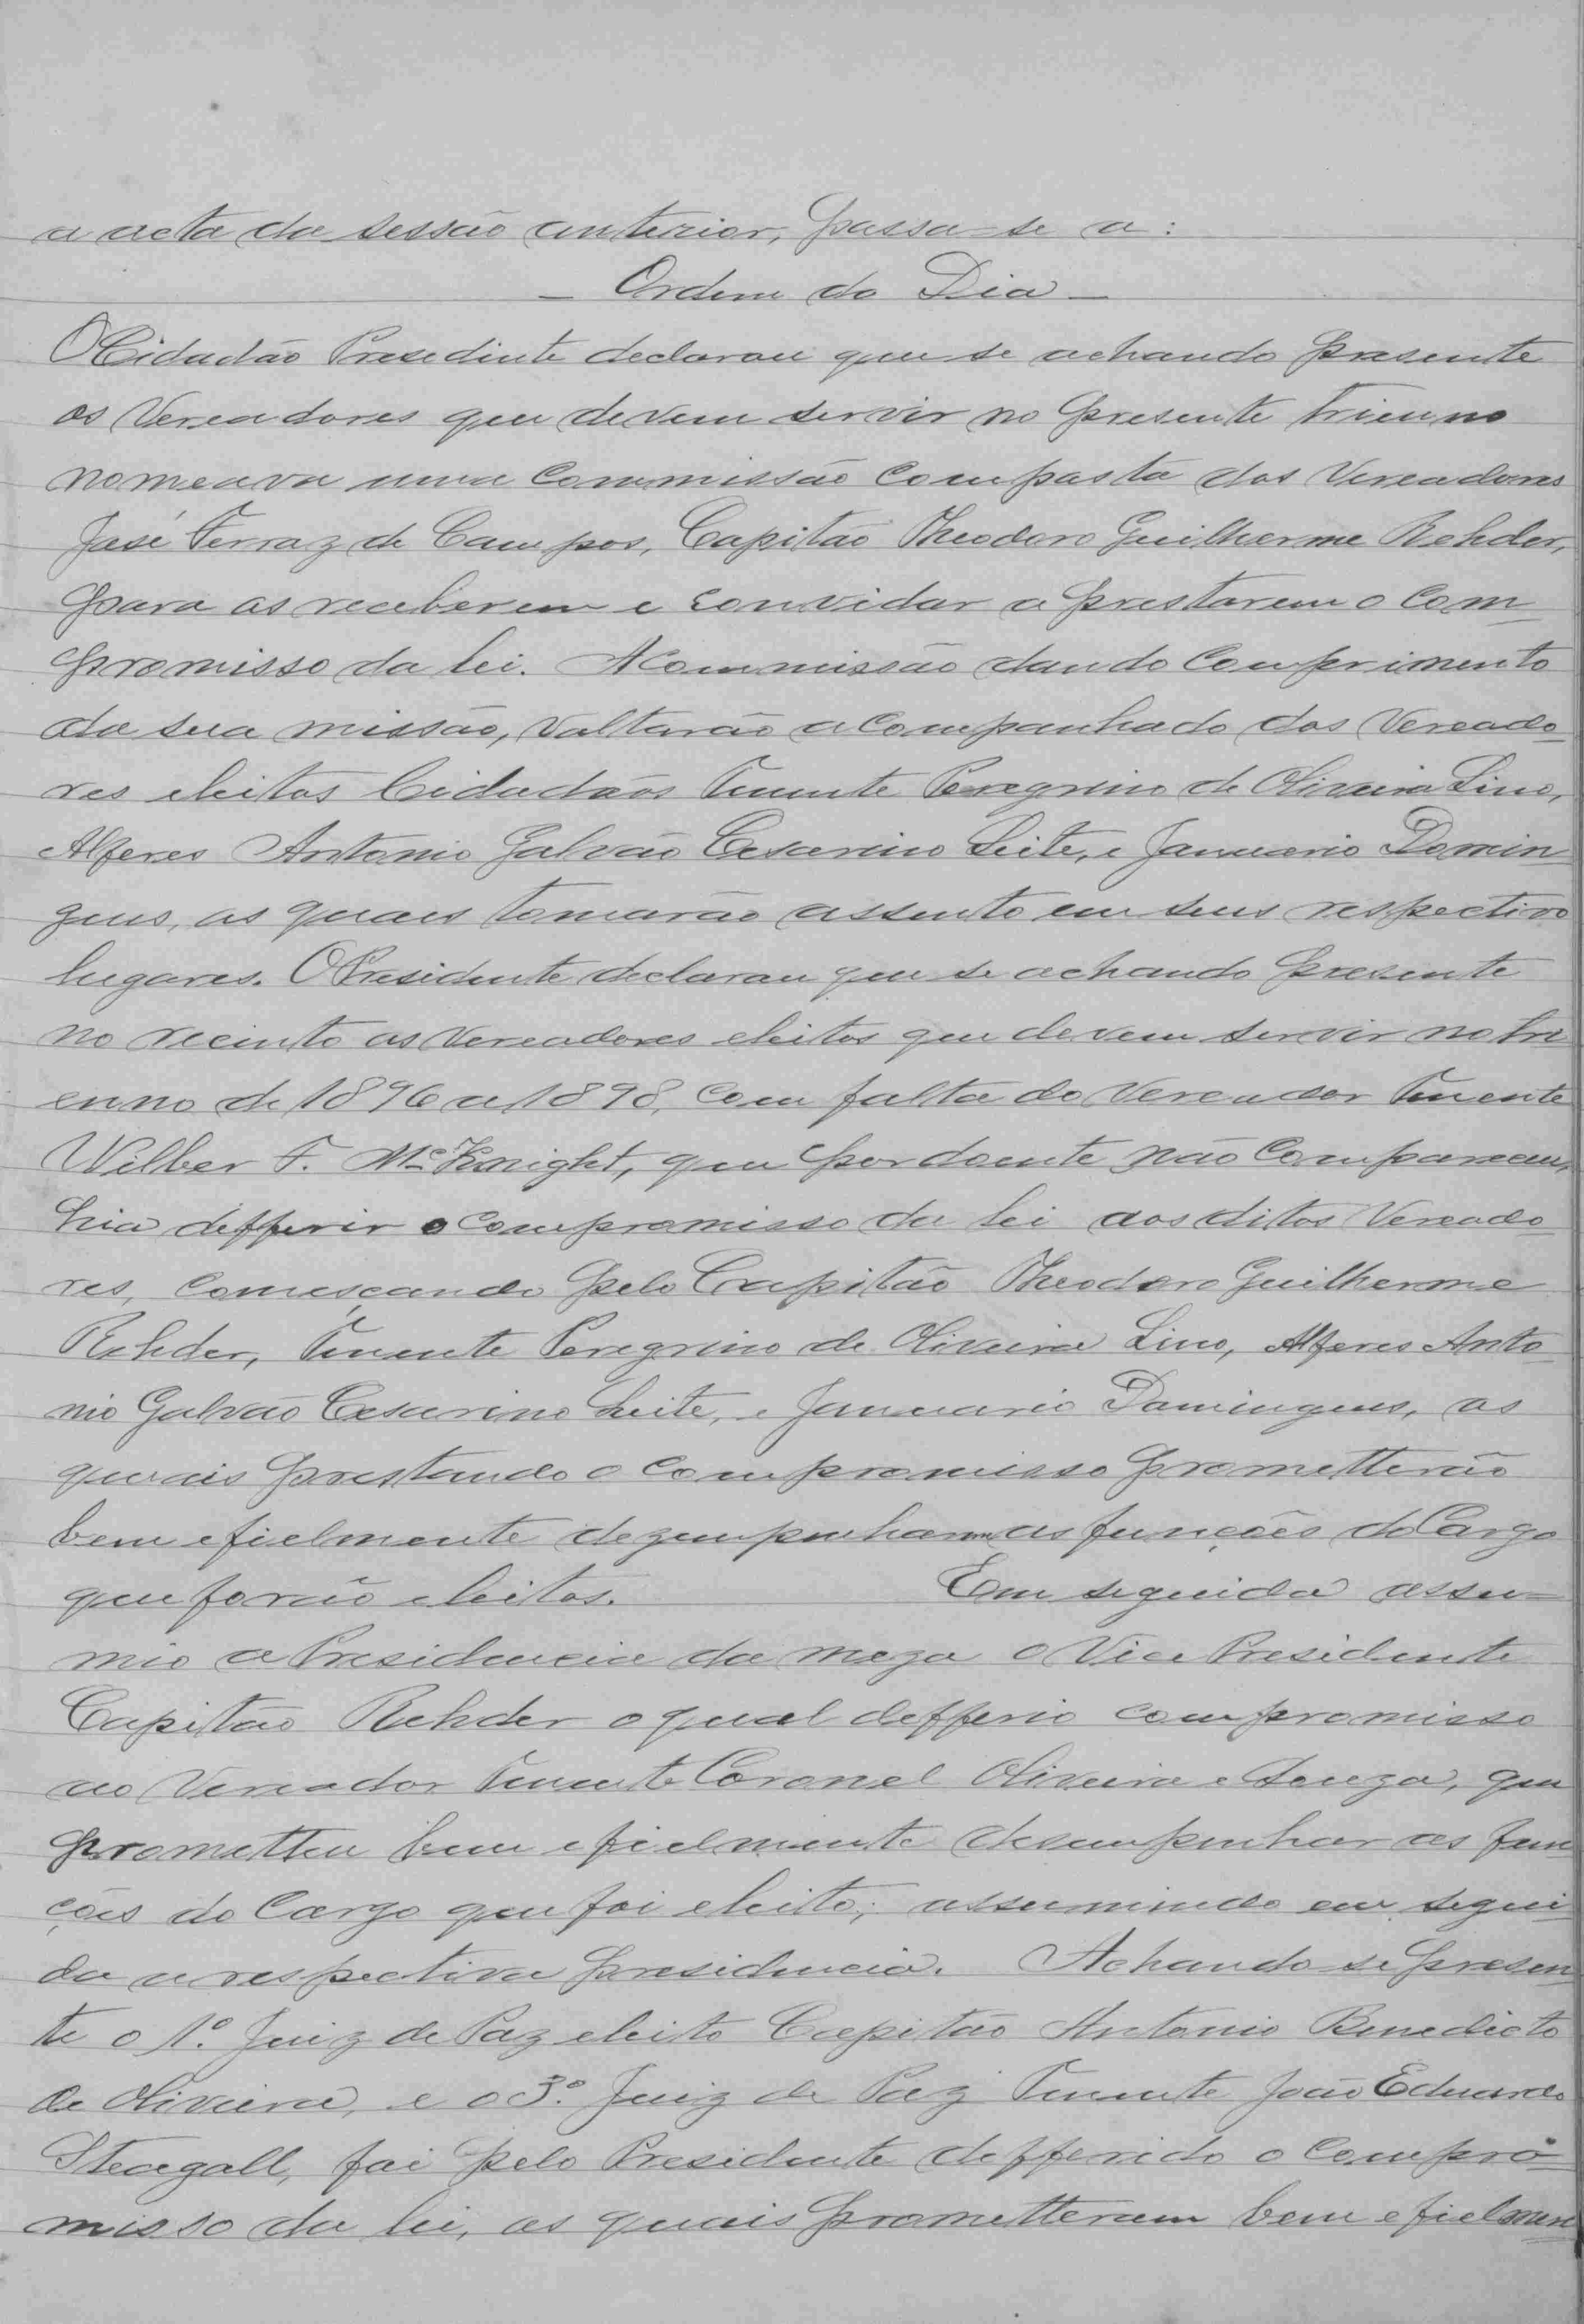 a acta da sessão anterior, passa-se a:
— Ordem do Dia —
O Cidadão Presediente declarou que se achando presente
os Vereadores que devem servir no presente trienno
nomeava uma Commissão composta dos Vereadores
José Ferraz de Campos, Capitão Theodoro Guilherme Rehder,
para os receberem e convidar a prestarem o Com
promisso da lei. A Commissão dando comprimento
da sua missão, voltarão acompanhado dos Vereado
res eleitos Cidadãos Tenente Peregrino de Oliveira Lino,
Alferes Antonio Galvão Cesarino Leite, e Januario Domin
gues, os quaes tomarão assento em seus respectivo
lugares. O Presidente declarou que se achando presente
no recinto os Vereadores eleitos que devem servir no tri
enno de 1896 a 1898, com falta do Vereador Tenente
Wilber F. McKnight, que por doente não compareceu,
hia defferir o compromisso da lei aos ditos Vereado
res, comesçando pelo Capitão Theodoro Guilherme
Rehder, Tenente Peregrino de Oliveira Lino, Alferes Anto
nio Galvão Cesarino Leite, e Januario Domingues, os
quais prestando o compromisso prometterão
bem e fielmente dezempenharem as funções do Cargo
que forão eleitos. Em seguida assu-
mio a Presidencia da meza o Vice Presidente
Capitão Rehder o qual defferio compromisso
ao Vereador Tenente Coronel Oliveira e Souza, que
prometteu bem e fielmente desempenhar as fun
ções do Cargo que foi eleito; assumindo em segui
da a respectiva presidencia. Achando-se presen
te o 1º. Juiz de Paz eleito Capitão Antonio Benedicto
de Oliveira, e o 3º. Juiz de Paz Tenente João Eduardo
Steagall, foi pelo Presidente defferido o compro
misso da lei, os quais prometteram bem e fielmen